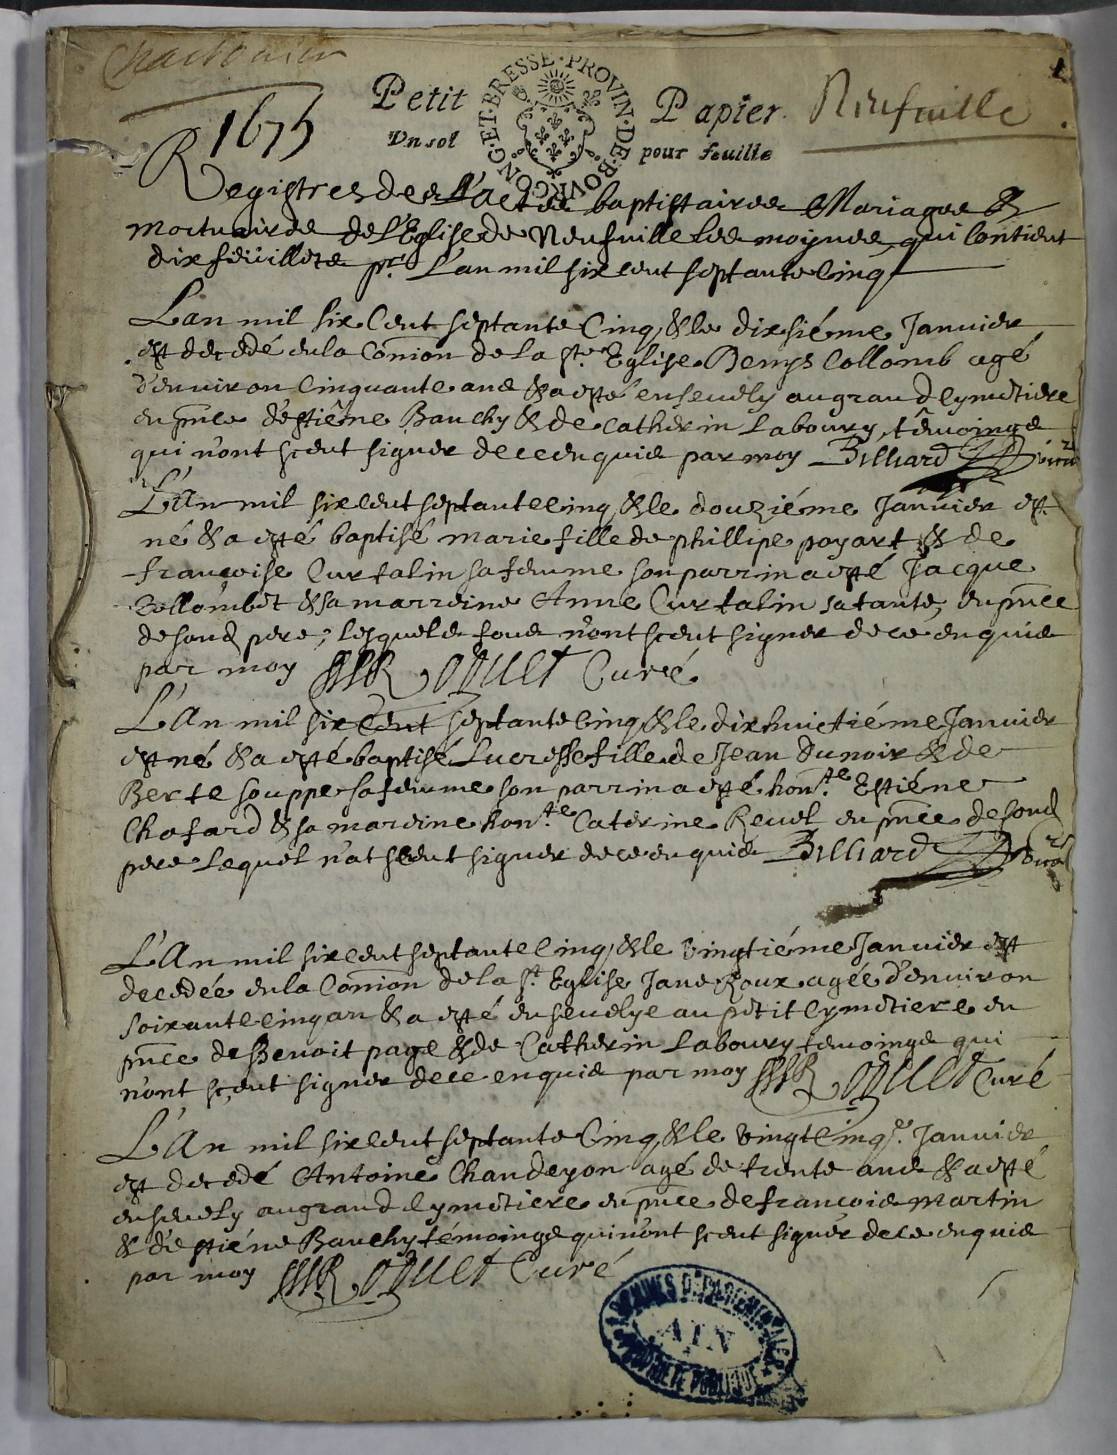 Charbonier
1
Petit Papier
Un sol pour feuille
BOVRGONG·ET·BRESSE·PROVIN·DE·
Neufville
1675
Registres des actes baptistaires Mariages &
mortuaires de l'Eglise de Neufville les moynes qui Contient
dix feüillets pr. L'an mil six cent septante Cinq
L'an mil six Cent septante Cinq, & le dixsiéme Janvier
est decedé en la Comion de la ste Eglise Denys Collomb agé
d'environ Cinquante ans & a esté ensevely au grand Cymetiere
en pnce d'Estiéne Bauchy & de Catherin Laboury, témoings
qui n'ont sceut signer de ce enquis par moy Billiard vicre
L'An mil six cent septante Cinq, & le douziéme Janvier est
né & a esté baptisé marie fille de phillipe poyart & de
francoise Curtalin sa femme son parrin a esté Jacque
Collombet & sa marreine Anne Curtalin sa tante, en pnce
de sond pere; lesquels tous n'ont sceut signer de ce enquis
par moy Roquet Curé
L'An mil six Cent septante Cinq, & le dix huictiéme Janvier
est né & a esté baptisé Lucresse fille de Jean Dunoir & de
Berte souppe sa femme son parrin a esté hon.te Estiéne
Chafard & sa mareine hon.te Caterine Revel en pnce de sond
pere Lequel n'at sceut signer de ce enquis Billiard vicre
L'An mil six cent septante Cinq, & le vingtiéme Janvier est
decedée en la Comion de la st. Eglise Jane Roux agée d'environ
soixante cinq an & a esté ensevelye au petit Cymetiere en
pnce de Benoit page & de Catherin Laboury temoings qui
n'ont sceut signer de ce enquis par moy Roquet Curé
L'An mil six cent septante Cinq, & le vingt Cinqe. Janvier
est decedé Antoine Chandeyon agé de trente ans & a esté
ensevely au grand Cymetiere en pnce de francois Martin
& d'Estiéne Bauchy témoings qui n'ont sceut signer de ce enquis
par moy Roquet Curé
ARCHIVES DEPARTEMENTALES
AIN
PROPRIETE PUBLIQUE